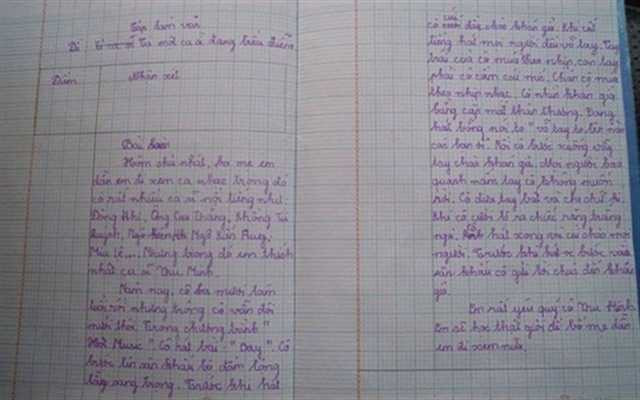 Tập làm văn
Đề Tả một ca sĩ đang biểu diễn.
Điểm Nhận xét
Bài làm
Hôm chủ nhật, ba mẹ em
dẫn em đi xem ca nhạc trong đó
có rất nhiều ca sĩ nổi tiếng như:
Đông Nhi, Ông Cao Thắng, Khổng Tú
Quỳnh, Ngô Kiến Huy,
Miu Lê,... Nhưng trong đó em thích
nhất ca sĩ Thu Minh.
Năm nay, cô ba mươi tám
tuổi rồi nhưng trông cô vẫn đôi
mươi thôi. Trong chương trình "
Hot Music". Cô hát bài: "Bay". Cô
bước lên sân khấu bộ đầm lộng
lẫy sang trọng. Trước khi hát
cô cúi đầu chào khán giả. Khi cất
tiếng hát mọi người đều vỗ tay. Tay
trái của cô múa theo nhịp, còn tay
phải cô cầm cái mic. Chân cô múa
theo nhịp nhạc. Cô nhìn khán giả
bằng cặp mắt thân thương. Đang
hát bỗng nói to "vỗ tay to lên nào
các bạn ơi. Rồi cô bước xuống vẫy
tay chào khán giả. Mọi người bao
quanh nắm tay cô không muốn
rời. Cô đưa tay bắt và cho chữ kí.
Khi cô cười lộ ra chiếc răng trắng
ngà. hát xong rồi cúi chào mọi
người. Trước khi bước vào
sân khấu cô gửi lời chúc đến khán
giả.
Em rất yêu quý cô Thu Minh.
Em sẽ học thật giỏi để bố mẹ dẫn
em đi xem nữa.